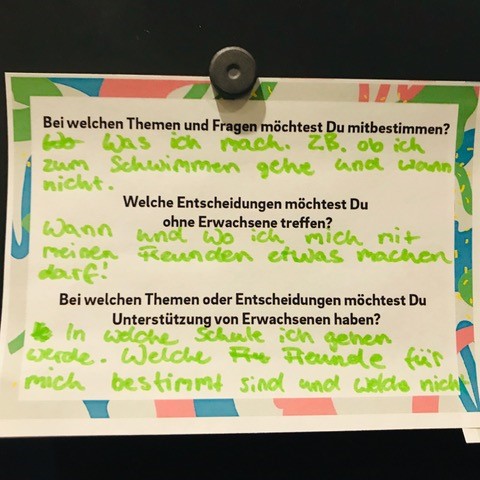 Bei welchen Themen und Fragen möchtest Du mitbestimmen?
Wo Was ich mach. ZB. ob ich
zum Schwimmen gehe und wann
nicht.
Welche Entscheidungen möchtest Du
ohne Erwachsene treffen?
Wann und wo ich mich mit
meinen Freunden etwas machen
darf!
Bei welchen Themen oder Entscheidungen möchtest Du
Unterstützung von Erwachsenen haben?
In welche Schule ich gehen
werde. Welche Freunde für
mich bestimmt sind und welche nicht